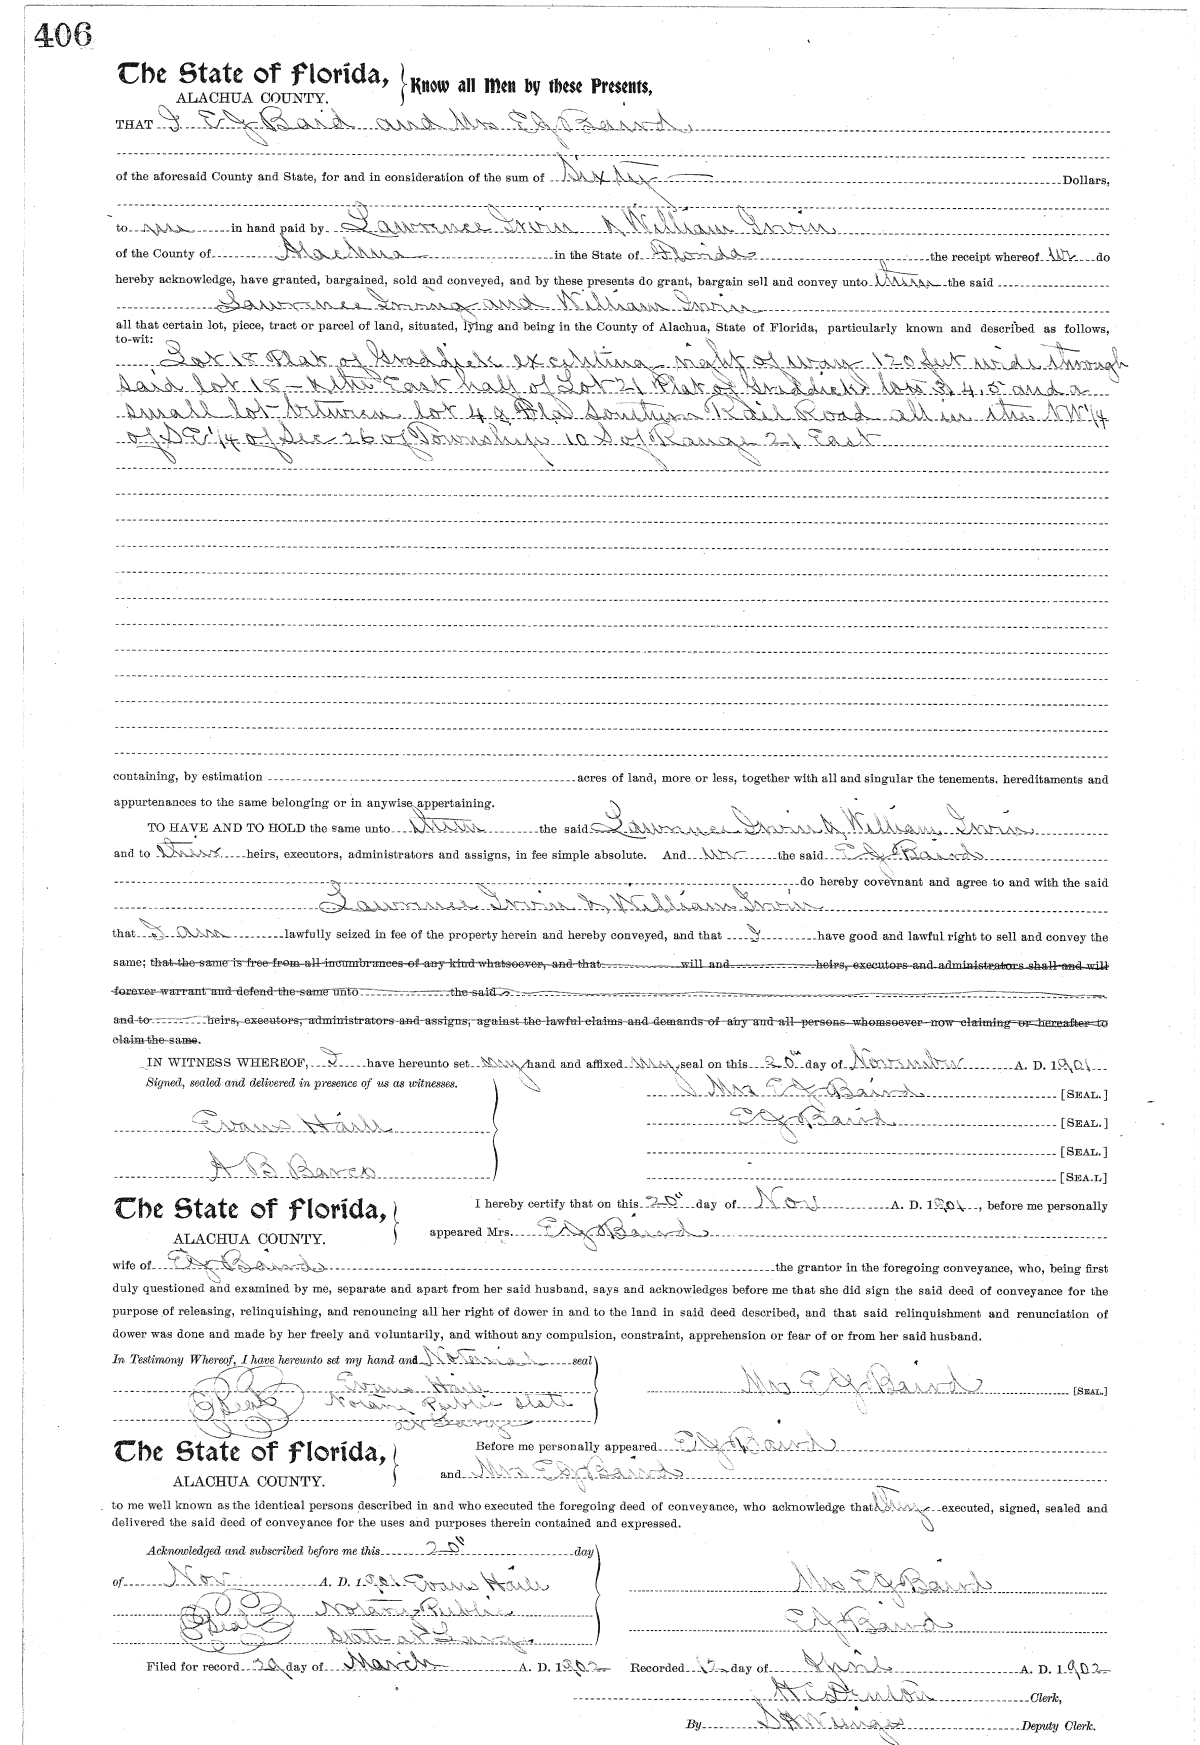 406
The State of Florida, Know all Men by these Presents,
ALACHUA COUNTY.
THAT I E J Baid and Mrs E J Baird
of the aforesaid County and State, for and in consideration of the sum of Sixty Dollars,
to me in hand paid by Lawrence Irvin & William Irvin
of the County of Alachua in the State of Florida the receipt whereof we do
hereby acknowledge, have granted, bargained, sold and conveyed, and by these presents do grant, bargain sell and convey unto them the said
Lawrence Irving and William Irvin
all that certain lot, piece, tract or parcel of land, situated, lying and being in the County of Alachua, State of Florida, particularly known and described as follows,
to-wit:
Lot 18 Plat of Graddick excepting right of way 120 feet wide through
said lot 18 - & the East half of Lot 21 Plat of Graddick lots 3, 4, 5 and a
small lot between lot 4 & Fla Southern Rail Road all in the NW 1/4
of SE 1/4 of Sec 26 of Township 10 S of Range 21 East
containing, by estimation acres of land, more or less, together with all and singular the tenements, hereditaments and
appurtenances to the same belonging or in anywise appertaining.
TO HAVE AND TO HOLD the same unto them the said Lawrence Irvin & William Irvin
and to their heirs, executors, administrators and assigns, in fee simple absolute. And we the said E J Baird
do hereby covevnant and agree to and with the said
Lawrence Irvin & William Irvin
that I am lawfully seized in fee of the property herein and hereby conveyed, and that I have good and lawful right to sell and convey the
same; that the same is free from all incumbrances of any kind whatsoever, and that will and heirs, executors and administrators shall and will
forever warrant and defend the same unto the said
and to heirs, executors, administrators and assigns, against the lawful claims and demands of any and all persons whomsoever now claiming or hereafter to
claim the same.
IN WITNESS WHEREOF, I have hereunto set my hand and affixed my seal on this 20th day of November A. D. 1901
Signed, sealed and delivered in presence of us as witnesses. Mrs E J Baird [SEAL.]
Evans Haile E J Baird [SEAL.]
[SEAL.]
A B Barco [SEA.L]
The State of Florida, I hereby certify that on this 20" day of Nov A. D. 1901, before me personally
ALACHUA COUNTY. appeared Mrs. E J Baird
wife of E J Baird the grantor in the foregoing conveyance, who, being first
duly questioned and examined by me, separate and apart from her said husband, says and acknowledges before me that she did sign the said deed of conveyance for the
purpose of releasing, relinquishing, and renouncing all her right of dower in and to the land in said deed described, and that said relinquishment and renunciation of
dower was done and made by her freely and voluntarily, and without any compulsion, constraint, apprehension or fear of or from her said husband.
In Testimony Whereof, I have hereunto set my hand and Noterial seal
Evans Haile Mrs E J Baird [SEAL]
Seal Notary Public State
at Large
The State of Florida, Before me personally appeared E J Baird
ALACHUA COUNTY. and Mrs E J Baird
to me well known as the identical persons described in and who executed the foregoing deed of conveyance, who acknowledge that they executed, signed, sealed and
delivered the said deed of conveyance for the uses and purposes therein contained and expressed.
Acknowledged and subscribed before me this 20" day
of Nov A. D. 1901 Evans Haile Mrs E J Baird
Seal Notary Public
State at Large E J Baird
Filed for record 29 day of March A. D. 1902 Recorded 12 day of April A. D. 1902
H C Denton Clerk,
By S H Wienges Deputy Clerk.